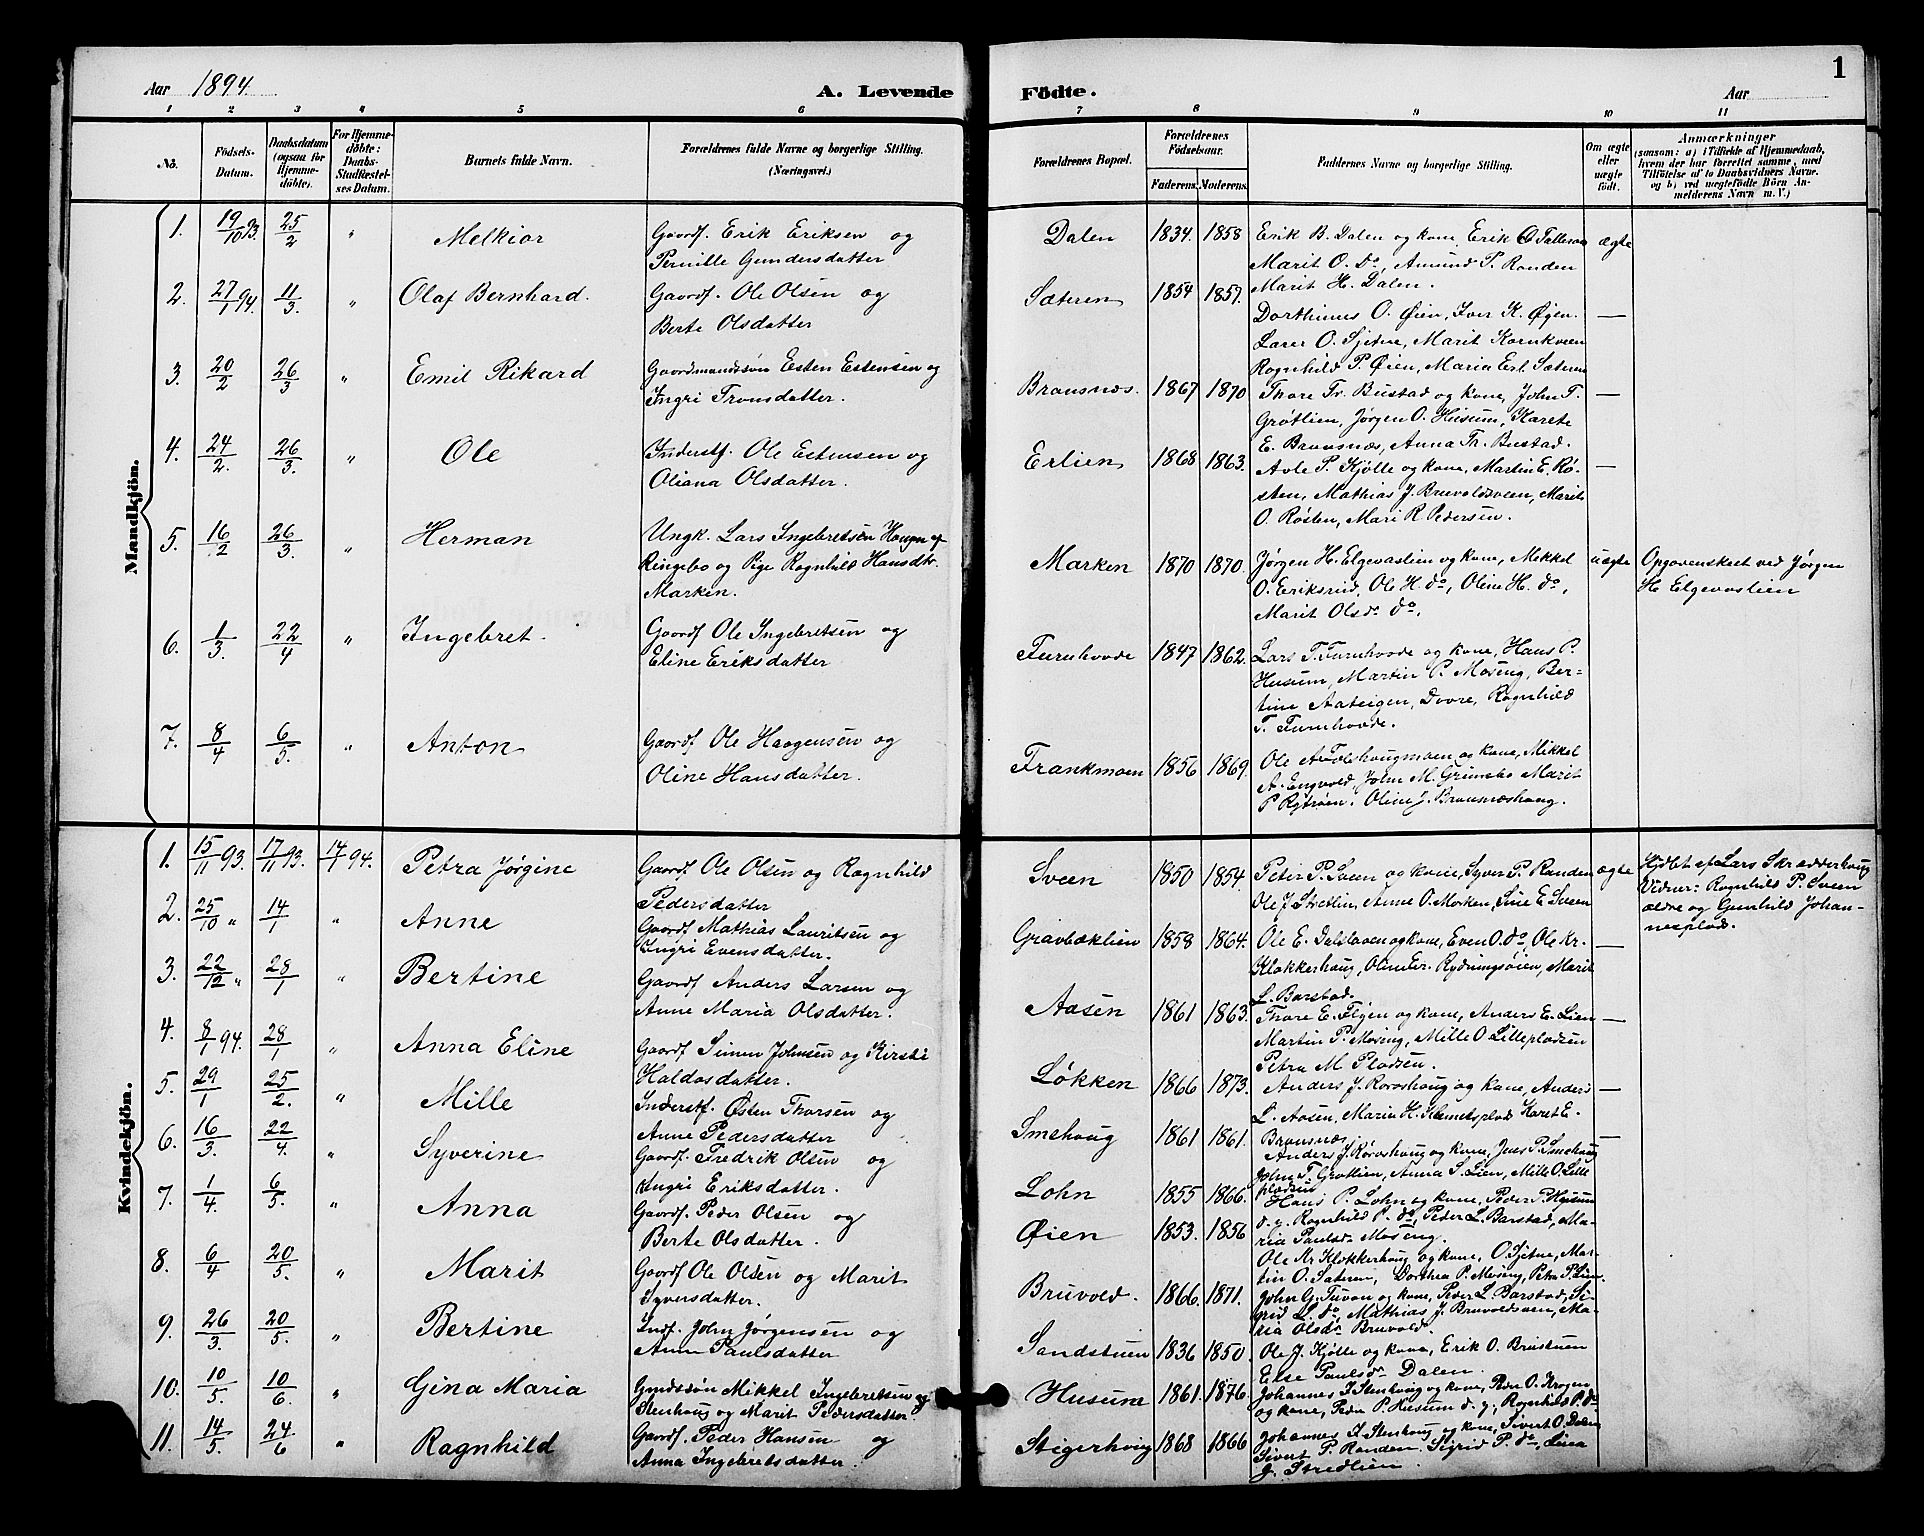 Aar 1894.
A. Levende Födte.
Aar
1
1 2 3 4 5 6 7 8 9 10 11
No.
Födsels-Datum.
Daabsdatum (ogsaa for Hjemmedöbte).
For Hjemmedöbte: Daabs-Stadfæstelses Datum.
Barnets fulde Navn.
Forældrenes fulde Navne og borgerlige Stilling. (Næringsvei.)
Forældrenes Bopæl.
Forældrenes Födselsaar.
Faderens. Moderens.
Faddernes Navne og borgerlige Stilling.
Om ægte eller uægte födt.
Anmærkninger
(saasom: a) i Tilfælde af Hjemmedaab, hvem der har forrettet samme, med Tilföielse af to Daabsvidners Navne. og b) ved uægtefödte Börn Anmelderens Navn m. V.)
Mandkjön.
1. 19/10 93. 25/2 " Melkior
Gaardf. Erik Eriksen og
Pernille Gundersdatter
Dalen 1834. 1858
Erik B. Dalen og kone, Erik O Talleraas
Marit O. do, Amund P. Randen
Marit H. Dalen.
ægte
2. 27/1 94. 11/3. " Olaf Bernhard.
Gaardf. Ole Olsen og
Berte Olsdatter
Sæteren 1854 1857.
Dorthinus O. Øien, Iver K. Øgen.
Larer O. Sjetne, Marit Kornkveen
Ragnhild P. Øien, Maria Erl. Sæteren
—
3. 20/2 26/3 " Emil Rikard
Gaardmandssön Esten Estensen og
Ingri Tronsdatter.
Bransnæs. 1867 1870
Thore Tr. Bustad og kone, John T.
Grøtlien, Jørgen O. Husum, Karete
E. Bransnæs, Anna Tr. Bustad.
—
4. 24/2. 26/3. " Ole
Inderstf. Ole Estensen og
Oliana Olsdatter.
Erlien 1868 1863.
Avle P. Kjølle og kone, Martin E. Rø-
sten, Mathias J. Bruvoldsveen, Marit
O. Røsten, Mari R. Pedersen.
—
5. 16/2 26/3. " Herman
Ungk. Lars Ingebretsen Haugen af
Ringebo og Pige Ragnhild Hansdtr.
Marken.
Marken 1870 1870.
Jørgen H. Elgevaslien og kone, Mekkel
O. Eriksrud, Ole H. do, Oline H. do,
Marit Olsd. do.
uægte
Opgaven skeet ved Jørgen
H. Elgevaslien
6. 1/3. 22/4 " Ingebret.
Gaardf Ole Ingebretsen og
Eline Eriksdatter
Furuhovde 1847 1862.
Lars T. Furuhovde og kone, Hans P.
Husum, Martin P. Moseng, Ber-
tine Aateigen, Dovre, Ragnhild
T. Furuhovde.
7. 8/4 6/5. " Anton
Gaardf Ole Haagensen og
Oline Hansdatter.
Frankmoen 1856 1869.
Ole A Folehaugmoen og kone, Mikkel
A. Engvold, John M. Grimsbo Marit
P Rytrøen. Oline J. Bransnæshaug.
Kvindekjön.
1. 15/11 93. 17/11 93. 14/1 94. Petra Jørgine
Gaardf Ole Olsen og Ragnhild
Pedersdatter
Sveen 1850 1854.
Peter P. Sveen og kone, Syver P. Randen
Ole J Strædlien, Anne O. Marken, Line E Sveen
ægte
Hjdøbt af Lars Skrædderhaug
Vidner: Ragnhild P. Sveen
ældre og Gunhild Johan-
nesplads.
2. 25/10 " 14/1 " Anne
Gaardf Mathias Lauritsen og
Ingri Evensdatter.
Gravbæklien 1858 1864.
Ole E. Dalslaven og kone, Even O. do, Ole Kr.
Klokkerhaug, Oline Er. Rydningsøien, Marit
L. Barstad.
—
3. 22/12 " 28/1 " Bertine
Gaardf Anders Larsen og
Anne Maria Olsdatter.
Aasen 1861 1863.
Thore E. Flgen og kone, Anders E. Lien
Martin P. Moseng, Mille O. Lilleplodsen
Petra M Pladsen.
—
4. 8/1 94. 28/1 " Anna Eline
Gaardf Simen Johnsen og Kirsti
Haldosdatter.
Løkken 1866 1873.
Anders J. Røroshaug og kone, Anders
L. Aasen, Maria H. Klemetsplads Karet E.
Bransnæs.
—
5. 29/1 25/2. " Mille
Inderstf. Østen Thorsen og
Anne Pedersdatter
Smehaug 1861 1861.
Anders J. Røroshaug og kone, Jens P. Smehaug
John T. Grøtlien, Anna S. Lien, Mille O. Lille
pladsen
—
6. 16/3. 22/4. " Syverine
Gaardf. Fredrik Olsen og
Ingri Eriksdatter.
Lohn 1855 1866.
Hans P. Lohn og kone, Peder P. Husum
d. y. Ragnhild P. do, Peder L. Barstad, Ma-
ria Paulsd. Moseng.
7. 1/4. 6/5. " Anna
Gaardf. Peder Olsen og
Berte Olsdatter.
Øien 1853. 1856
Ole Kr Klokkerhaug og kone, O. Sjetne, Mar-
tin O. Sateren, Dorthea P. Moseng, Petra P. Lien.
8. 6/4 20/5. " Marit
Gaardf Ole Olsen og Marit
Syversdatter.
Bruvold. 1866. 1871.
John G. Tuvan og kone, Peder L. Barstad, Si-
grid L. do, Mathias J. Bruvoldsveen, Ma-
ria Olsdr Bruvold.
9. 26/3. 20/5. " Bertine
Indf. John Jørgensen og
Anne Paulsdatter
Sandstuen 1836 1850.
Ole J. Kjølle og kone, Erik O. Brustuen
Else Paulsdr Dalen.
10. 10/5 10/6. " Gina Maria
Gmdssøn Mikkel Ingebretsen
Stenhaug og Marit Pedersdatter
Husum 1861. 1876.
Johannes I. Stenhaug og kone, Peder O. Krogen
og kone, Peder P. Husum d. y., Ragnhild P. do
11. 14/5. 24/6 " Ragnhild
Gaardf. Peder Hansen og
Anna Ingebretsdatter.
Stigerhaug 1868 1866
Johannes I. Stenhaug og kone, Sivert O. Dalen
Sivert P. Randen. Sigrid P. do, Lina
J. Strædlien.